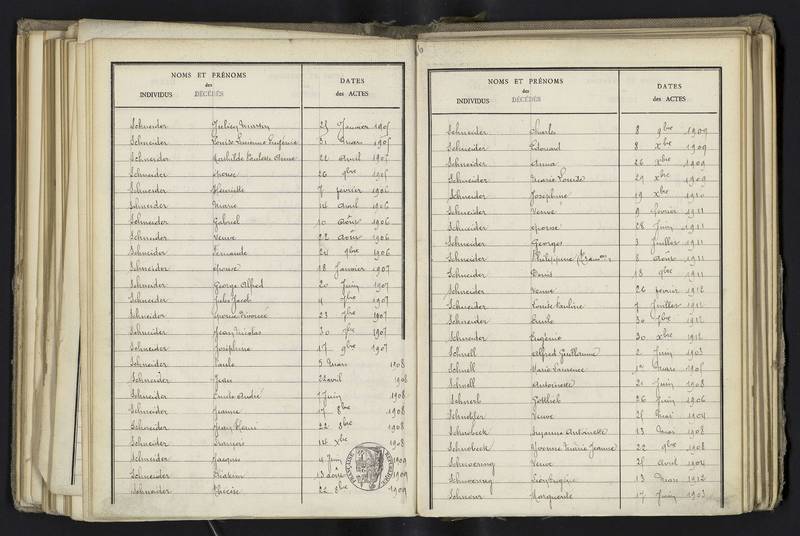 NOMS ET PRÉNOMS
des
INDIVIDUS DÉCÉDÉS
DATES
des ACTES
Schneider Julien Martin 25 Janvier 1905
Schneider Louise Eugénie 31 Mars 1905
Schneider Mathilde Paulette Anna 22 Avril 1905
Schneider 26 9bre 1905
Schneider Henriette 7 février 1906
Schneider Marie 14 Avril 1906
Schneider Gabriel 10 Août 1906
Schneider Veuve 22 Août 1906
Schneider Fernande 24 9bre 1906
Schneider épouse 18 Janvier 1907
Schneider George Alfred 20 Juin 1907
Schneider Jules Jacob 4 7bre 1907
Schneider épouse divorcée 23 7bre 1907
Schneider Jean Nicolas 30 1907
Schneider Joséphine 17 9bre 1907
Schneider Paule 5 Mars 1908
Schneider Jean 22 avril 1908
Schneider Emile André 1 Juin 1908
Schneider Jeanne 17 8bre 1908
Schneider Jean Henri 22 8bre 1908
Schneider François 14 Xbre 1908
Schneider Jacques 4 Juin 1909
Schneider 13 août 1909
Schneider Thérèse 22 8bre 1909
NOMS ET PRÉNOMS
des
INDIVIDUS DÉCÉDÉS
DATES
des ACTES
Schneider Charles 8 9bre 1909
Schneider Edouard 8 Xbre 1909
Schneider Anna 26 Xbre 1909
Schneider Marie Louise 29 Xbre 1909
Schneider Joséphine 19 Xbre 1910
Schneider Veuve 9 février 1911
Schneider épouse 28 Juin 1911
Schneider Georges 3 Juillet 1911
Schneider Philippine 8 Août 1911
Schneider Denis 18 9bre 1911
Schneider Veuve 26 février 1912
Schneider Louise Pauline 7 Juillet 1912
Schneider Emile 30 1912
Schneider Eugénie 30 Xbre 1912
Schnell Alfred Guillaume 2 Juin 1903
Schnell Marie Laurence 1er Mars 1905
Schnell Antoinette 21 Juin 1908
Schnerb Gottlieb 26 Juin 1906
Veuve 25 Mai 1904
Schnobeck Suzanne Antoinette 13 Mai 1908
Schnobeck Yvonne Marie Jeanne 22 9bre 1908
Schnoering Veuve 25 Avril 1904
Schnoering Léon Eugène 13 Mars 1912
Schnour Marguerite 17 Juin 1903